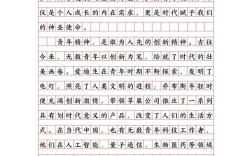 仅是个人成长的内在需求，更是时代赋予我们
的神圣使命。
青年精神，是敢为人先的创新精神。古往
今来，无数青年以创新为笔，绘就了时代的壮
美画卷。爱迪生在青年时期不断探索，发明了
电灯，照亮了人类文明的进程；乔布斯年轻时
便充满创新激情，带领苹果公司推出了一系列
具有划时代意义的产品，改变了人们的生活方
式。在当代中国，也有无数青年科技工作者，
他们在人工智能、量子通信、生物医药等领域